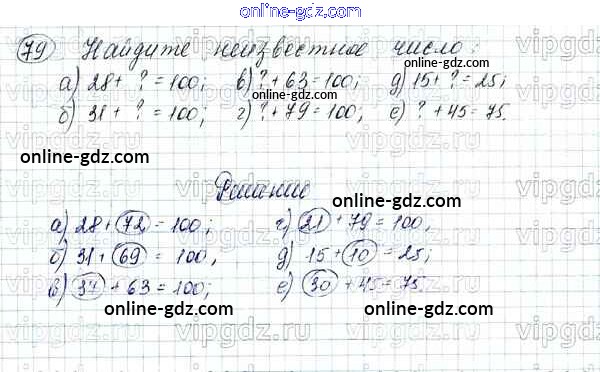 online-gdz.com
79 Найдите неизвестное число:
а) 28 + ? = 100; в) ? + 63 = 100; д) 15 + ? = 25;
online-gdz.com
б) 31 + ? = 100; г) ? + 79 = 100; е) ? + 45 = 75.
online-gdz.com online-gdz.com
Решение
online-gdz.com
а) 28 + 72 = 100; г) 21 + 79 = 100,
online-gdz.com
б) 31 + 69 = 100, д) 15 + 10 = 25;
online-gdz.com
в) 37 + 63 = 100; е) 30 + 45 = 75.
online-gdz.com
online-gdz.com